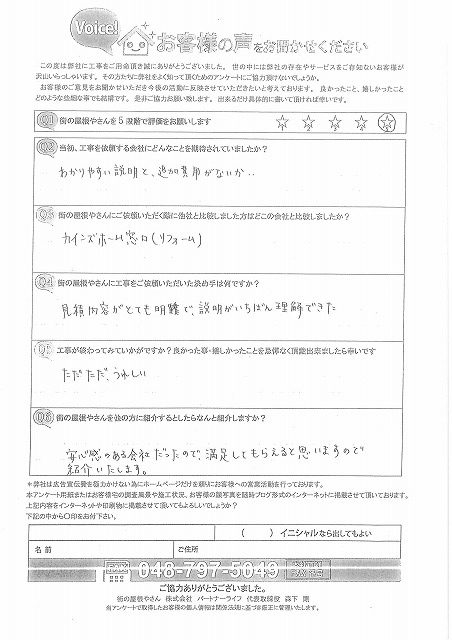 Voice!
お客様の声をお聞かせください
この度は弊社に工事をご用命頂き誠にありがとうございました。世の中には弊社の存在やサービスをご存知ないお客様が
沢山いらっしゃいます。その方たちに弊社をよく知って頂くためのアンケートにご協力頂けないでしょうか。
お客様のご意見をお聞かせいただき今後の活動に反映させていただきたいと考えております。良かったこと、嬉しかったこと
どのような些細な事でも結構です。是非ご協力お願い致します。出来るだけ具体的に書いて頂ければ幸いです。
Q1 街の屋根やさんを5段階で評価をお願いします
Q2 当初、工事を依頼する会社にどんなことを期待されていましたか?
わかりやすい説明と、追加費用がないか..
Q3 街の屋根やさんにご依頼いただく際に他社と比較しました方はどこの会社と比較しましたか?
カインズホーム窓口(リフォーム)
Q4 街の屋根やさんに工事をご依頼いただいた決め手は何ですか?
見積内容がとても明瞭で、説明がいちばん理解できた
Q5 工事が終わってみていかがですか?良かった事・嬉しかったことを忌憚なく頂戴出来ましたら幸いです
ただただ、うれしい
Q6 街の屋根やさんを他の方に紹介するとしたらなんと紹介しますか?
安心感のある会社だったので、満足してもらえると思いますので
紹介いたします。
*弊社は広告宣伝費を極力かけない為にホームページだけを頼りにお客様への営業活動を行っております。
本アンケート用紙またはお客様宅の調査風景や施工状況、お客様の顔写真を随時ブログ形式のインターネットに掲載させて頂いております。
上記内容をインターネットや印刷物に掲載させて頂いてもよろしいでしょうか?
下記の中から〇印をお付下さい。
( ) イニシャルなら出してもよい
名前 ご住所
FAX 048-797-5049
ご協力ありがとうございました。
街の屋根やさん 株式会社 パートナーライフ 代表取締役 森下 剛
当アンケートで取得したお客様の個人情報は関係法規に基づき厳正に管理いたします。